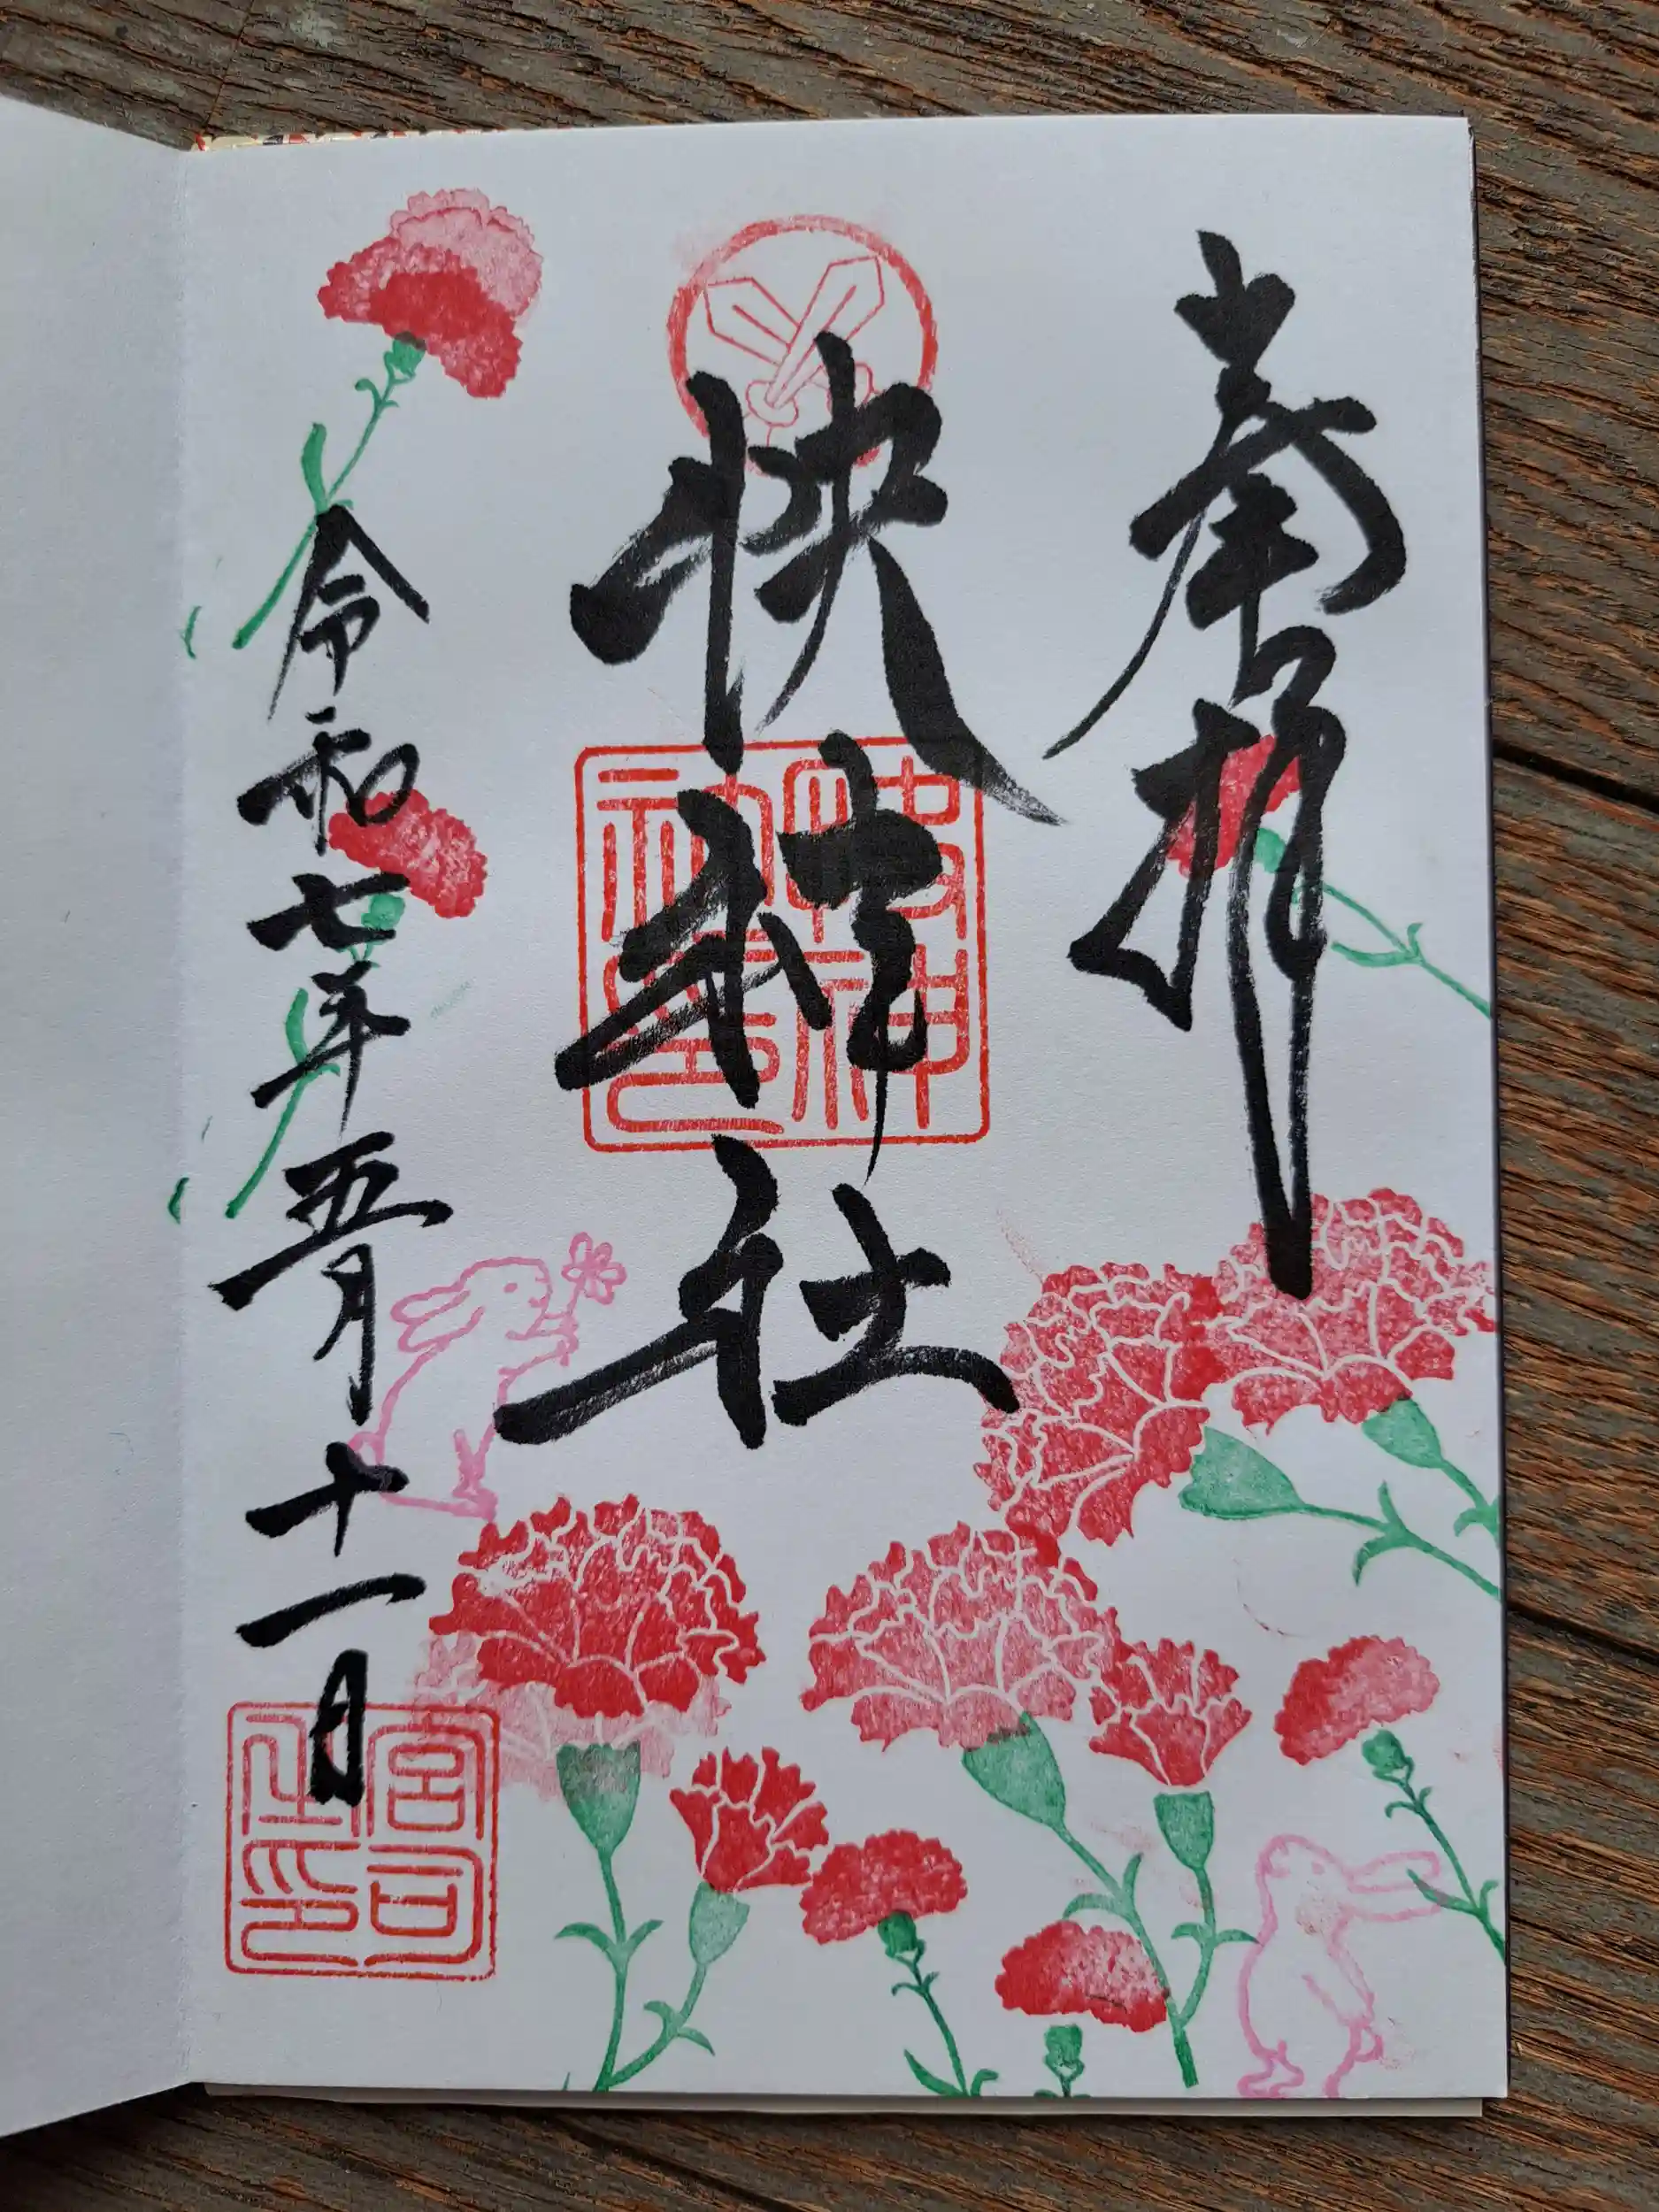 奉拝
快神社
令和七年五月十一日
快神社印
宮司之印